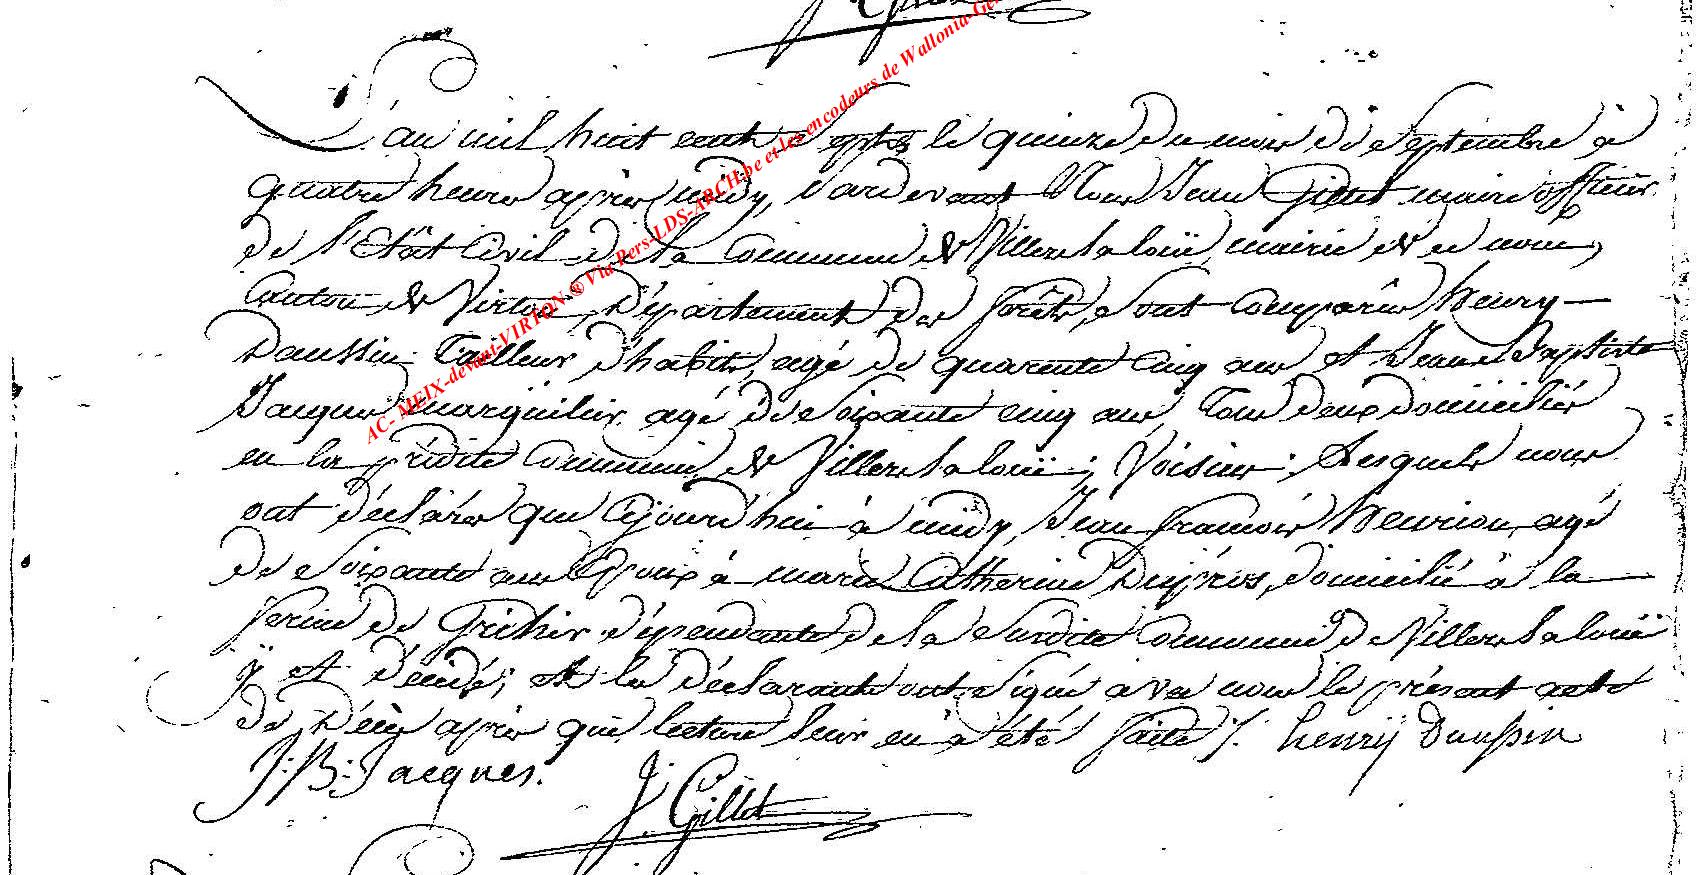 J. Gillet
AC- MEIX-devant-VIRTON ® Via Pers-LDS-ARCH.be et les encodeurs de Wallonia-Ge
L'an mil huit cent sept le quinze du mois de Septembre à
quatre heures après midy, pardevant Nous Jean Gillet maire officier
de l'Etât Civil de la Commune de Villers la loüe, mairie de ce nom,
Canton de Virton, Département des forêts, sont Comparûs henry
Daussin Tailleur d'habits, agé de quarente cinq ans et Jean Baptiste
Jacques marguilier agé de Soixante cinq ans, Tous deux domiciliés
en la prédite Commune de Villers la loüe; Voisins; Lesquels nous
ont déclarés que Cejourd'hui à midy, Jean françois henrion, agé
de Soixante ans Epoux à marie Catherine Dupros, domicilié à la
ferme de Grihir dépendante de la Susdite Commune de Villers la loüe
ÿ est décédé; et les déclarants ont signé avec nous le présent acte
de Décès après que lecture leur en à été faite ;/. henrÿ Daussin
J: B: Jacques.
J. Gillet